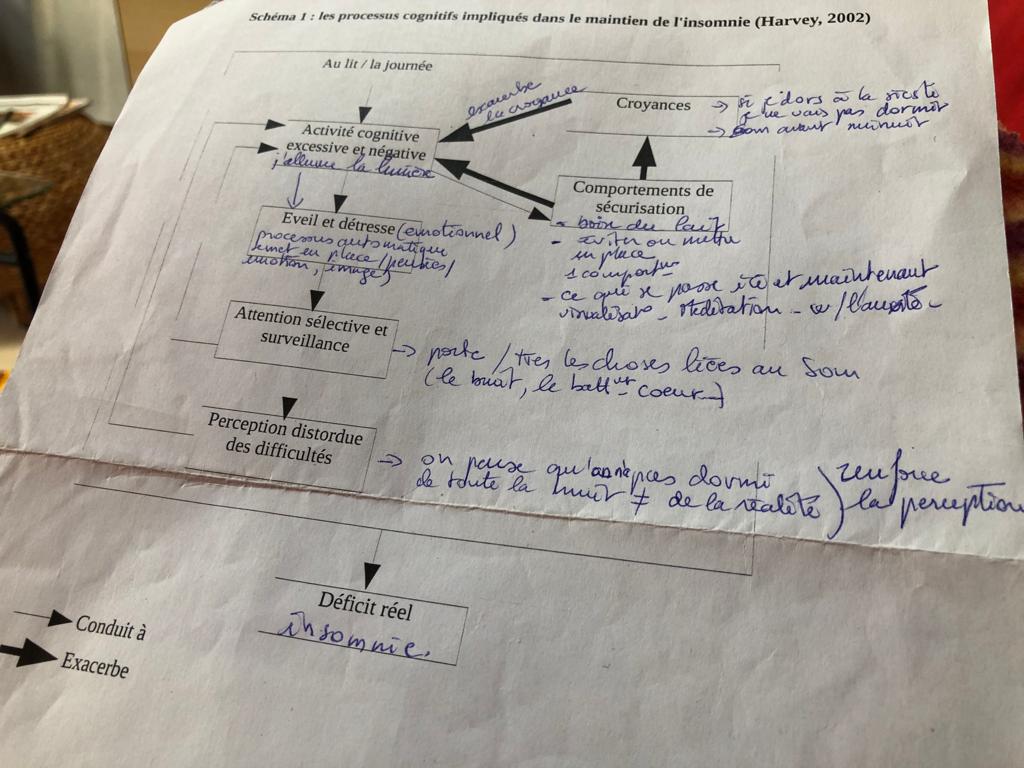 Schéma 1 : les processus cognitifs impliqués dans le maintien de l'insomnie (Harvey, 2002)
Au lit / la journée
exacerbe
croyance
Croyances
si j'dors à la sieste
je vais pas dormir
som avant minuit
Activité cognitive
excessive et négative
j'allume la lumière
Comportements de
sécurisation
- boire du lait
- éviter ou mettre
en place
1 comportmt
- ce qui se passe ici et maintenant
visualisat° - Méditation - /l'anxiété -
Eveil et détresse (émotionnel)
processus automatique
se met en place/pensées/
émotion, image)
Attention sélective et
surveillance
porte / ttes les choses liées au Som
(le bruit, le battmt coeur -)
Perception distordue
des difficultés
on pense qu'on n'a pas dormi
de toute la nuit ≠ de la réalité
renforce
la perception
Déficit réel
insomnie.
Conduit à
Exacerbe